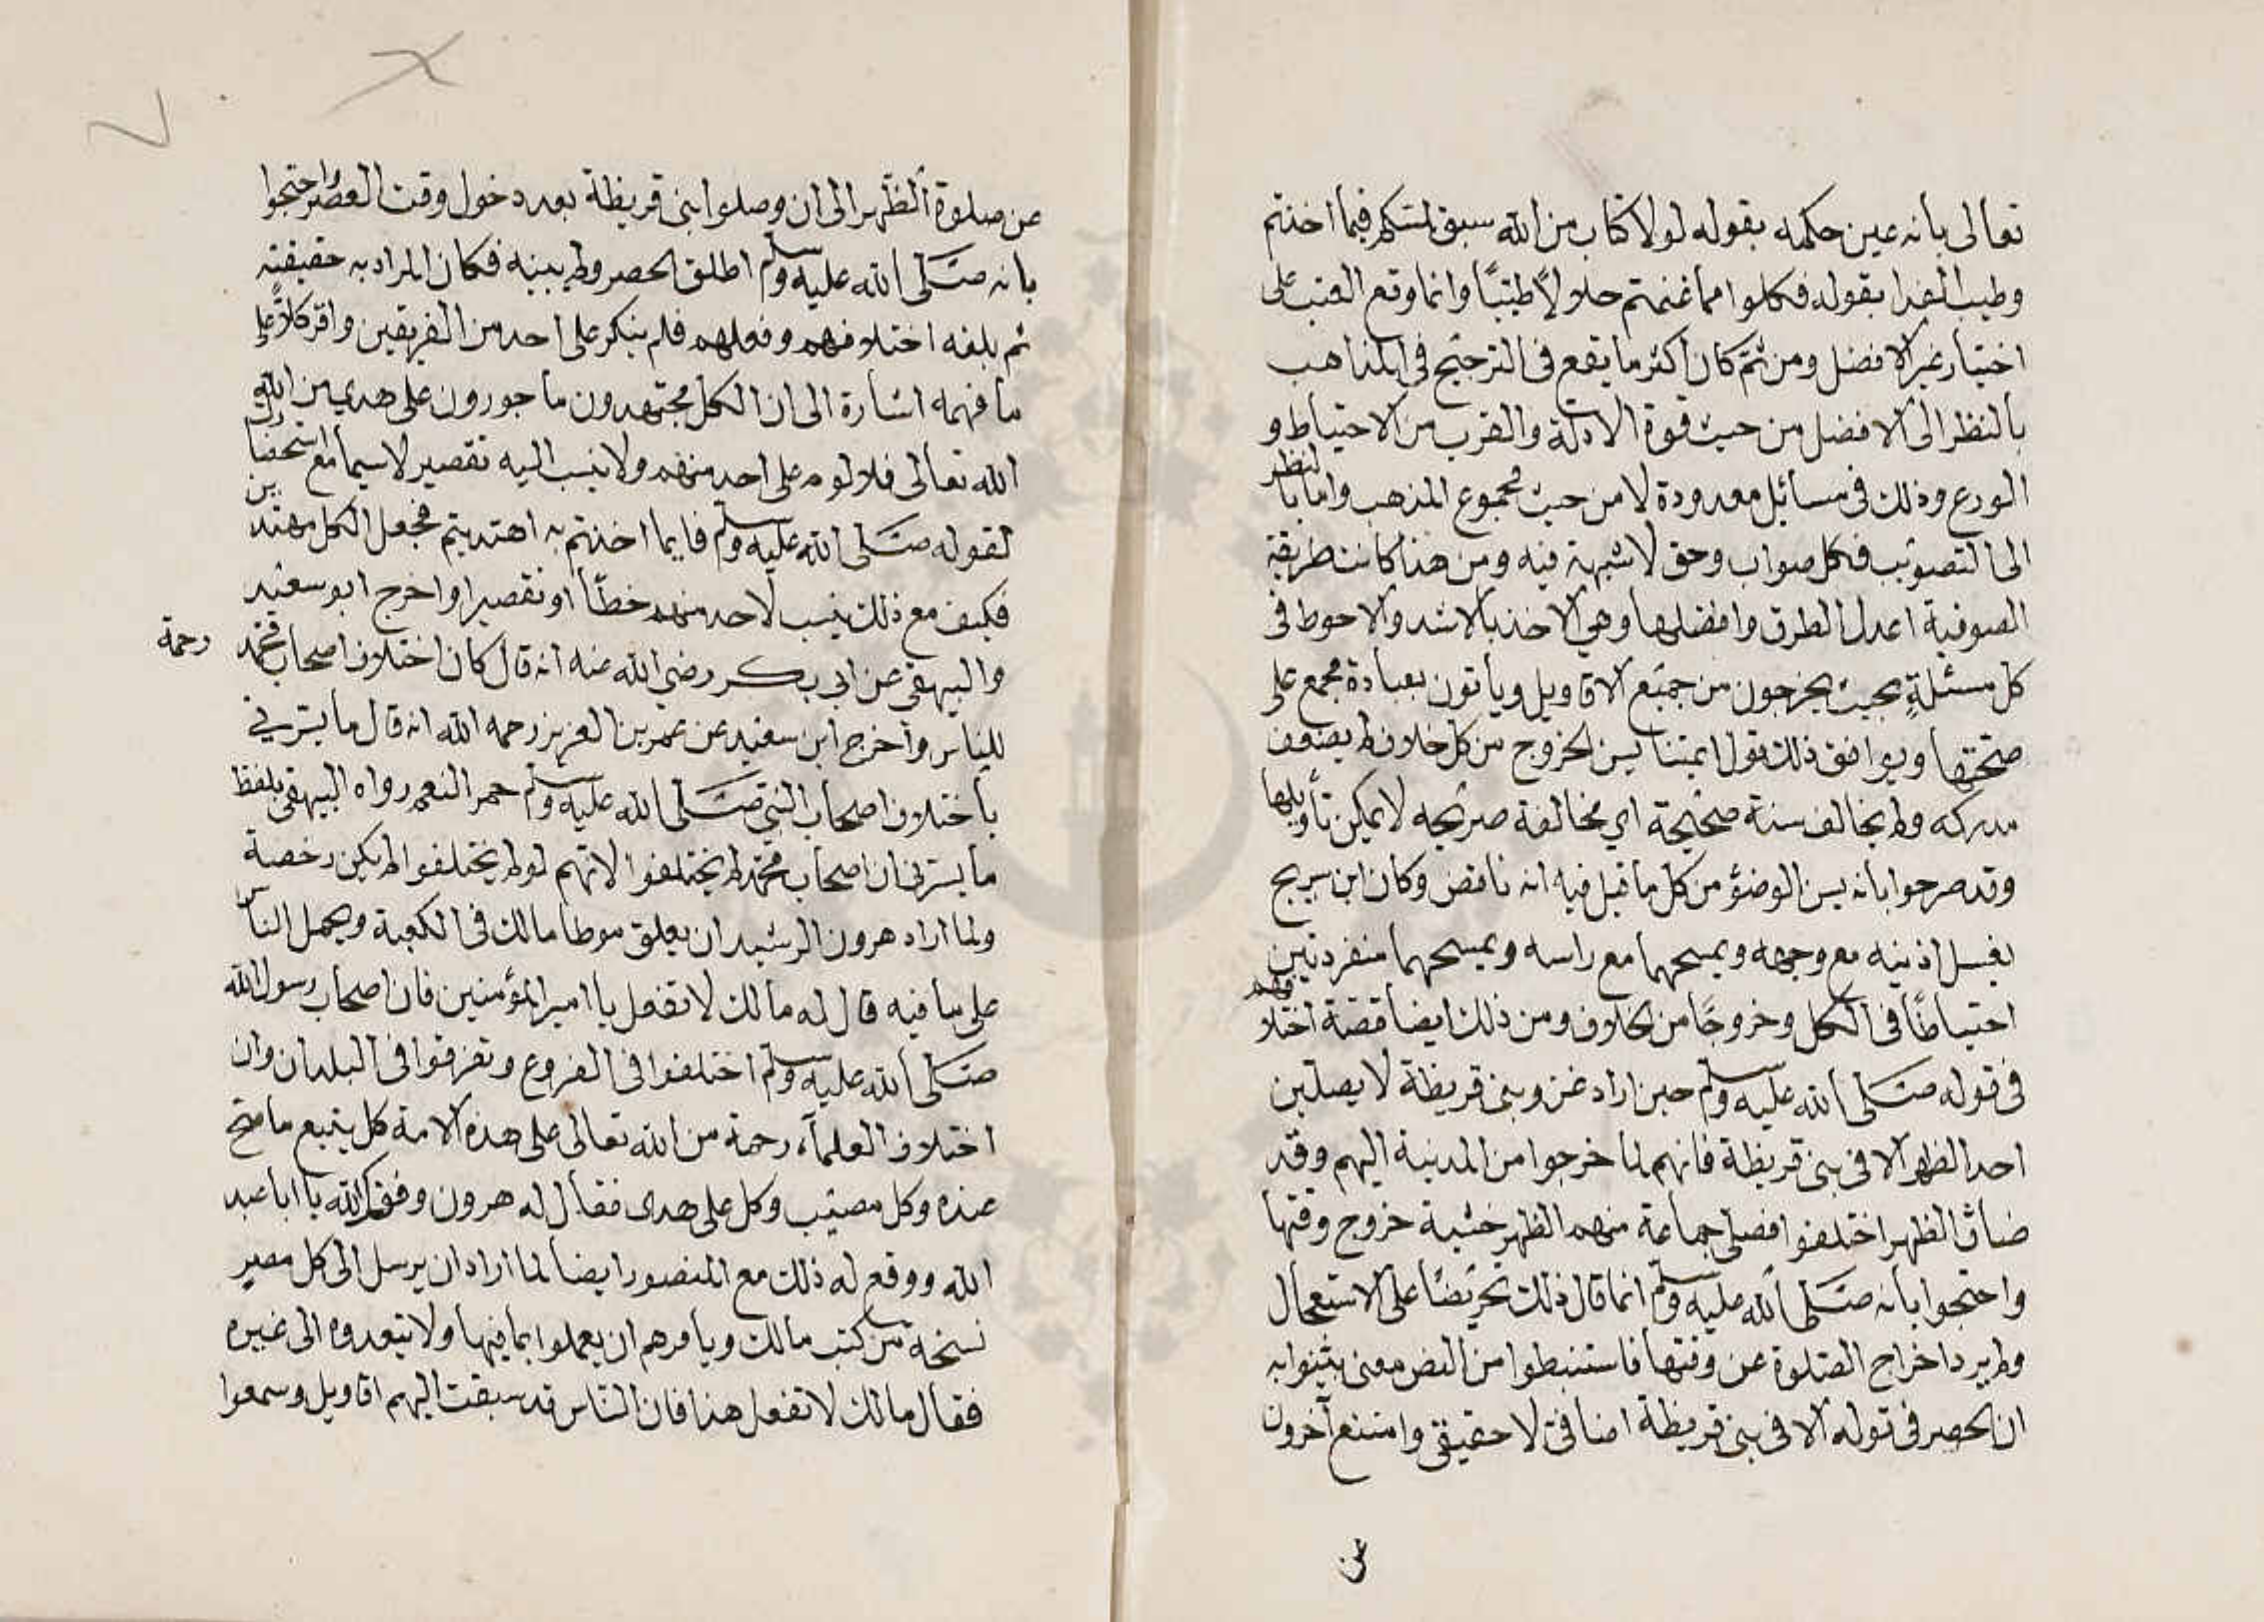 تعالى بانه عين حكمه بقوله لولا كتاب من الله سبق لمسكم فيما اخذتم
وطيب الفدا بقوله فكلوا مما غنمتم حلالاً طيّبًا وانما وقع العتب على
اختيار غير الافضل ومن ثمّ كان اكثر ما يقع فى الترجيح فى المذاهب
بالنظر الى الافضل من حيث قوة الادلة والقرب من الاحتياط و
الورع وذلك فى مسائل معدودة لا من حيث مجموع المذهب واما بالنظر
الى التصويب فكل صواب وحق لا شبهة فيه ومن هذا كانت طريقة
الصوفية اعدل الطرق وافضلها وهي الاخذ بالاشد والاحوط فى
كل مسئلةٍ بحيث يخرجون من جميع الاقاويل ويأتون بعبادة مجمع على
صحتها ويوافق ذلك قول ائمتنا يسن الخروج من كل خلاف لم يضعف
مدركه ولم يخالف سنة صحيحة اي مخالفة صريحه لا يمكن تأويلها
وقد صرحوا بانه يسن الوضؤ من كل ما قيل فيه انه ناقض وكان ابن سريج
يغسل اذنيه مع وجهه ويمسحهما مع راسه ويمسحهما منفردتين
احتياطًا فى الكل وخروجًا من الخلاف ومن ذلك ايضا قصة اختلافهم
فى قوله صَلّى الله عليه وسلم حين اراد غزو بنى قريظة لا يصلين
احد الظهر الا فى بنى قريظة فانهم لما خرجوا من المدينة اليهم وقد
ضاق الظهر اختلفوا فصلى جماعة منهم الظهر خشية خروج وقتها
واحتجوا بانه صَلّى الله عليه وسلم انما قال ذلك تحريضًا على الاستعجال
ولم يرد اخراج الصّلوة عن وقتها فاستنبطوا من النص معنى بثنوا به
ان الحصر فى قوله الا فى بنى قريظة اضافى لا حقيقي وامتنع آخرون
عن
عن صلوة الظّهر الى ان وصلوا بنى قريظة بعد دخول وقت العصر واحتجوا
بانه صَلّى الله عليه وسلم اطلق الحصر ولم يبينه فكان المراد به حقيقته
ثم بلغه اختلافهم وفعلهم فلم ينكر على احد من الفريقين واقر كلاً على
ما فهمه اشارة الى ان الكل مجتهدون ماجورون على هدى من الله
الله تعالى فلا لوم على احد منهم ولا ينسب اليه تقصير لا سيما مع استحضار
لقوله صَلّى الله عليه وسلم فايما اخذتم به اهتديتم فجعل الكل مهتدين
فكيف مع ذلك ينسب لاحد منهم خطأ او تقصيرا واخرج ابو سعيد
والبيهقى عن ابى بكر رضي الله عنه انه قال كان اختلاف اصحاب محمد رحمة
للناس واخرج ابن سعيد عن عمر بن العزيز رحمه الله انه قال ما يسّرني
باختلاف اصحاب النبي صَلّى الله عليه وسلم حمر النعم رواه البيهقى بلفظ
ما يسّرنى ان اصحاب محمّد لم يختلفوا لانهم لو لم يختلفوا لم يكن رخصة
ولما اراد هرون الرشيد ان يعلق موطا مالك فى الكعبة ويحمل الناس
على ما فيه قال له مالك لا تفعل يا امير المؤمنين فان اصحاب رسول الله
صَلّى الله عليه وسلم اختلفوا فى الفروع وتفرقوا فى البلدان وان
اختلاف العلماء رحمة من الله تعالى على هذه الامة كل يتبع ما صح
عنده وكل مصيب وكل على هدى فقال له هرون وفقك الله يا ابا عبد
الله ووقع له ذلك مع المنصور ايضا لما اراد ان يرسل الى كل مصر
نسخة من كتب مالك ويامرهم ان يعملوا بما فيها ولا يتعدوه الى غيره
فقال مالك لا تفعل هذا فان الناس قد سبقت اليهم اقاويل وسمعوا